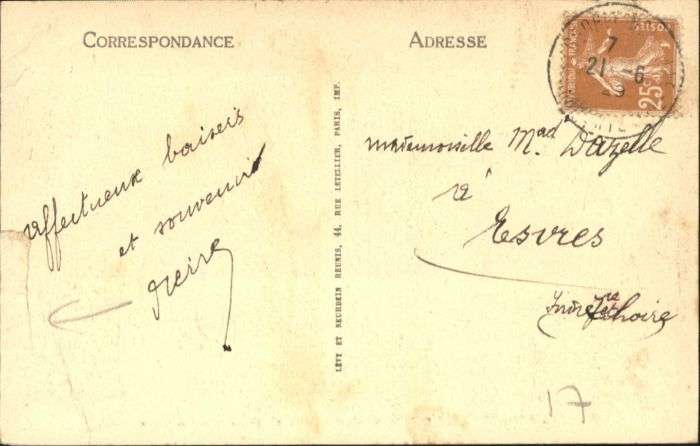 CORRESPONDANCE
affectueux baisers
et souvenir
Pierre
LÉVY ET NEURDEIN RÉUNIS, 44, RUE LETELLIER, PARIS, IMP.
ADRESSE
25
7
21-6
mademoiselle Mad Dazelle
à
Esvres
Indre
17